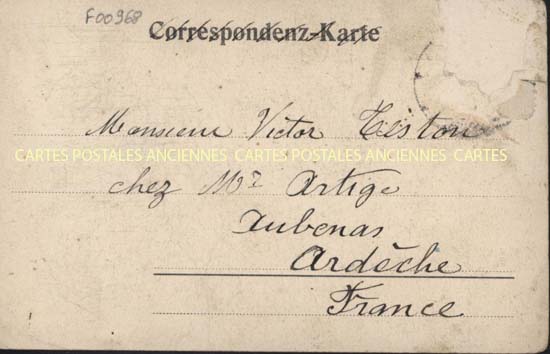 F00968
Correspondenz-Karte
Monsieur Victor Teston
CARTES POSTALES ANCIENNES CARTES POSTALES ANCIENNES CARTES
chez Mr Artige
Aubenas
Ardèche
France